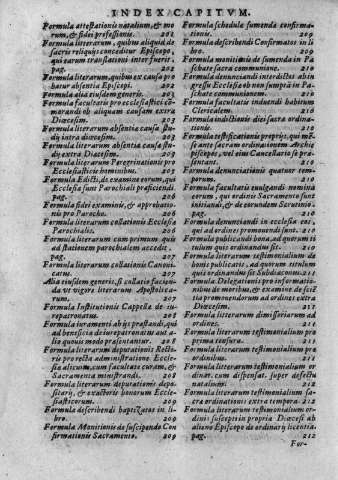 INDEX CAPITVM.
Formula attestationis natalium, & mo
rum, & fidei professionis. 202
Formula literarum, quibus aliquid de
sacris reliquijs conceditur Episcopo,
qui earum translationi interfuerit.
pag. 202
Formula literarum, quibus ex causa pro
batur absentia Episcopi. 202
Formula alia eiusdem generis. 203
Formula facultatis pro ecclesiastici com
morandi ob aliquam causam extra
Diœcesim. 203
Formula literarum absentia causa stu
dij intra diœcesim. 203
Formula literarum absentia causa stu
dij extra Diœcesim. 205
Formula literarum Peregrinationis pro
Ecclesiasticis hominibus. 205
Formula Edicti, de examine eorum, qui
Ecclesia sunt Parochiali præficiendi.
pag. 206
Formula fidei examinis, & approbatio-
nis pro Parocho. 206
Formula literarum collationis Ecclesia
Parochialis. 206
Formula literarum cum primum quis
ad stationem parochialem accedit.
pag. 207
Formula literarum collationis Canoni-
catus. 207
Alia eiusdem generis, si collatio facien-
da vt vigore literarum Apostolica-
rum. 207
Formula Institutionis Cappella de iu-
repatronatus. 208
Formula iuramenti ab ijs præstandi, qui
ad beneficia de iurepatronatus aut a-
lio quouis modo præsentantur. 208
Formula literarum deputationis Recto-
ris pro recta administratione Eccle-
sia alicuius, cum facultate curam, &
Sacramenta ministrandi. 208
Formula literarum deputationis depo-
sitarij, & exactoris bonorum Eccle-
siasticorum. 209
Formula describendi baptizatos in li-
bro. 209
Formula Monitionis de suscipendo Con
firmationis Sacramento. 209
Formula schedula sumenda confirma-
tionis. 209
Formula describendi Confirmatos in li-
bro. 209
Formula monitionis de sumenda in Pa
schate communione. 209
Formula denunciandi interdictos ab in
gressu Ecclesia ob non sumptā in Pa-
schate communionem. 210
Formula facultatis induendi habitum
Clericalem. 210
Formula indictionis diei sacra ordina-
tionis. 210
Formula testificationis proprijs, qui mē-
se ante sacram ordinationem Archie
piscopo, vel eius Cancellario se præ-
sentant. 210
Formula denunciationis quatuor tem-
porum. 210
Formula facultatis euulgandi nomina
eorum, qui ordinis Sacramento sunt
initiandi, & de eorundem Scrutinio.
pag. 210
Formula denunciandi in ecclesia eos,
qui ad ordines promouendi sunt. 211
Formula publicandi bona, ad quorum ti
tulum quis ordinandus sit. 211
Formula literarum testimonialium de
bonis publicatis, ad quorum titulum
quis ordinandus sit Subdiaconus. 211
Formula Delegationis pro informatio-
nibus de moribus, & examine de scie̅
tia promouendorum ad ordines extra
Diœcesim. 211
Formula literarum dimissoriarum ad
ordines. 211
Formula literarum testimonialium pro
prima tonsura. 211
Formula literarum testimonialium pro
ordinibus. 211
Formula literarum testimonialium or
dinat. cum dispensat. super defectu
natalium. 212
Formula literarum testimonialium sa-
cra ordinationi extra tempora. 212
Formula literarum testimonialium or-
dinis suscepti in propria Diœcesi ab
alieno Episcopo de ordinarij licentia.
pag. 212
For-